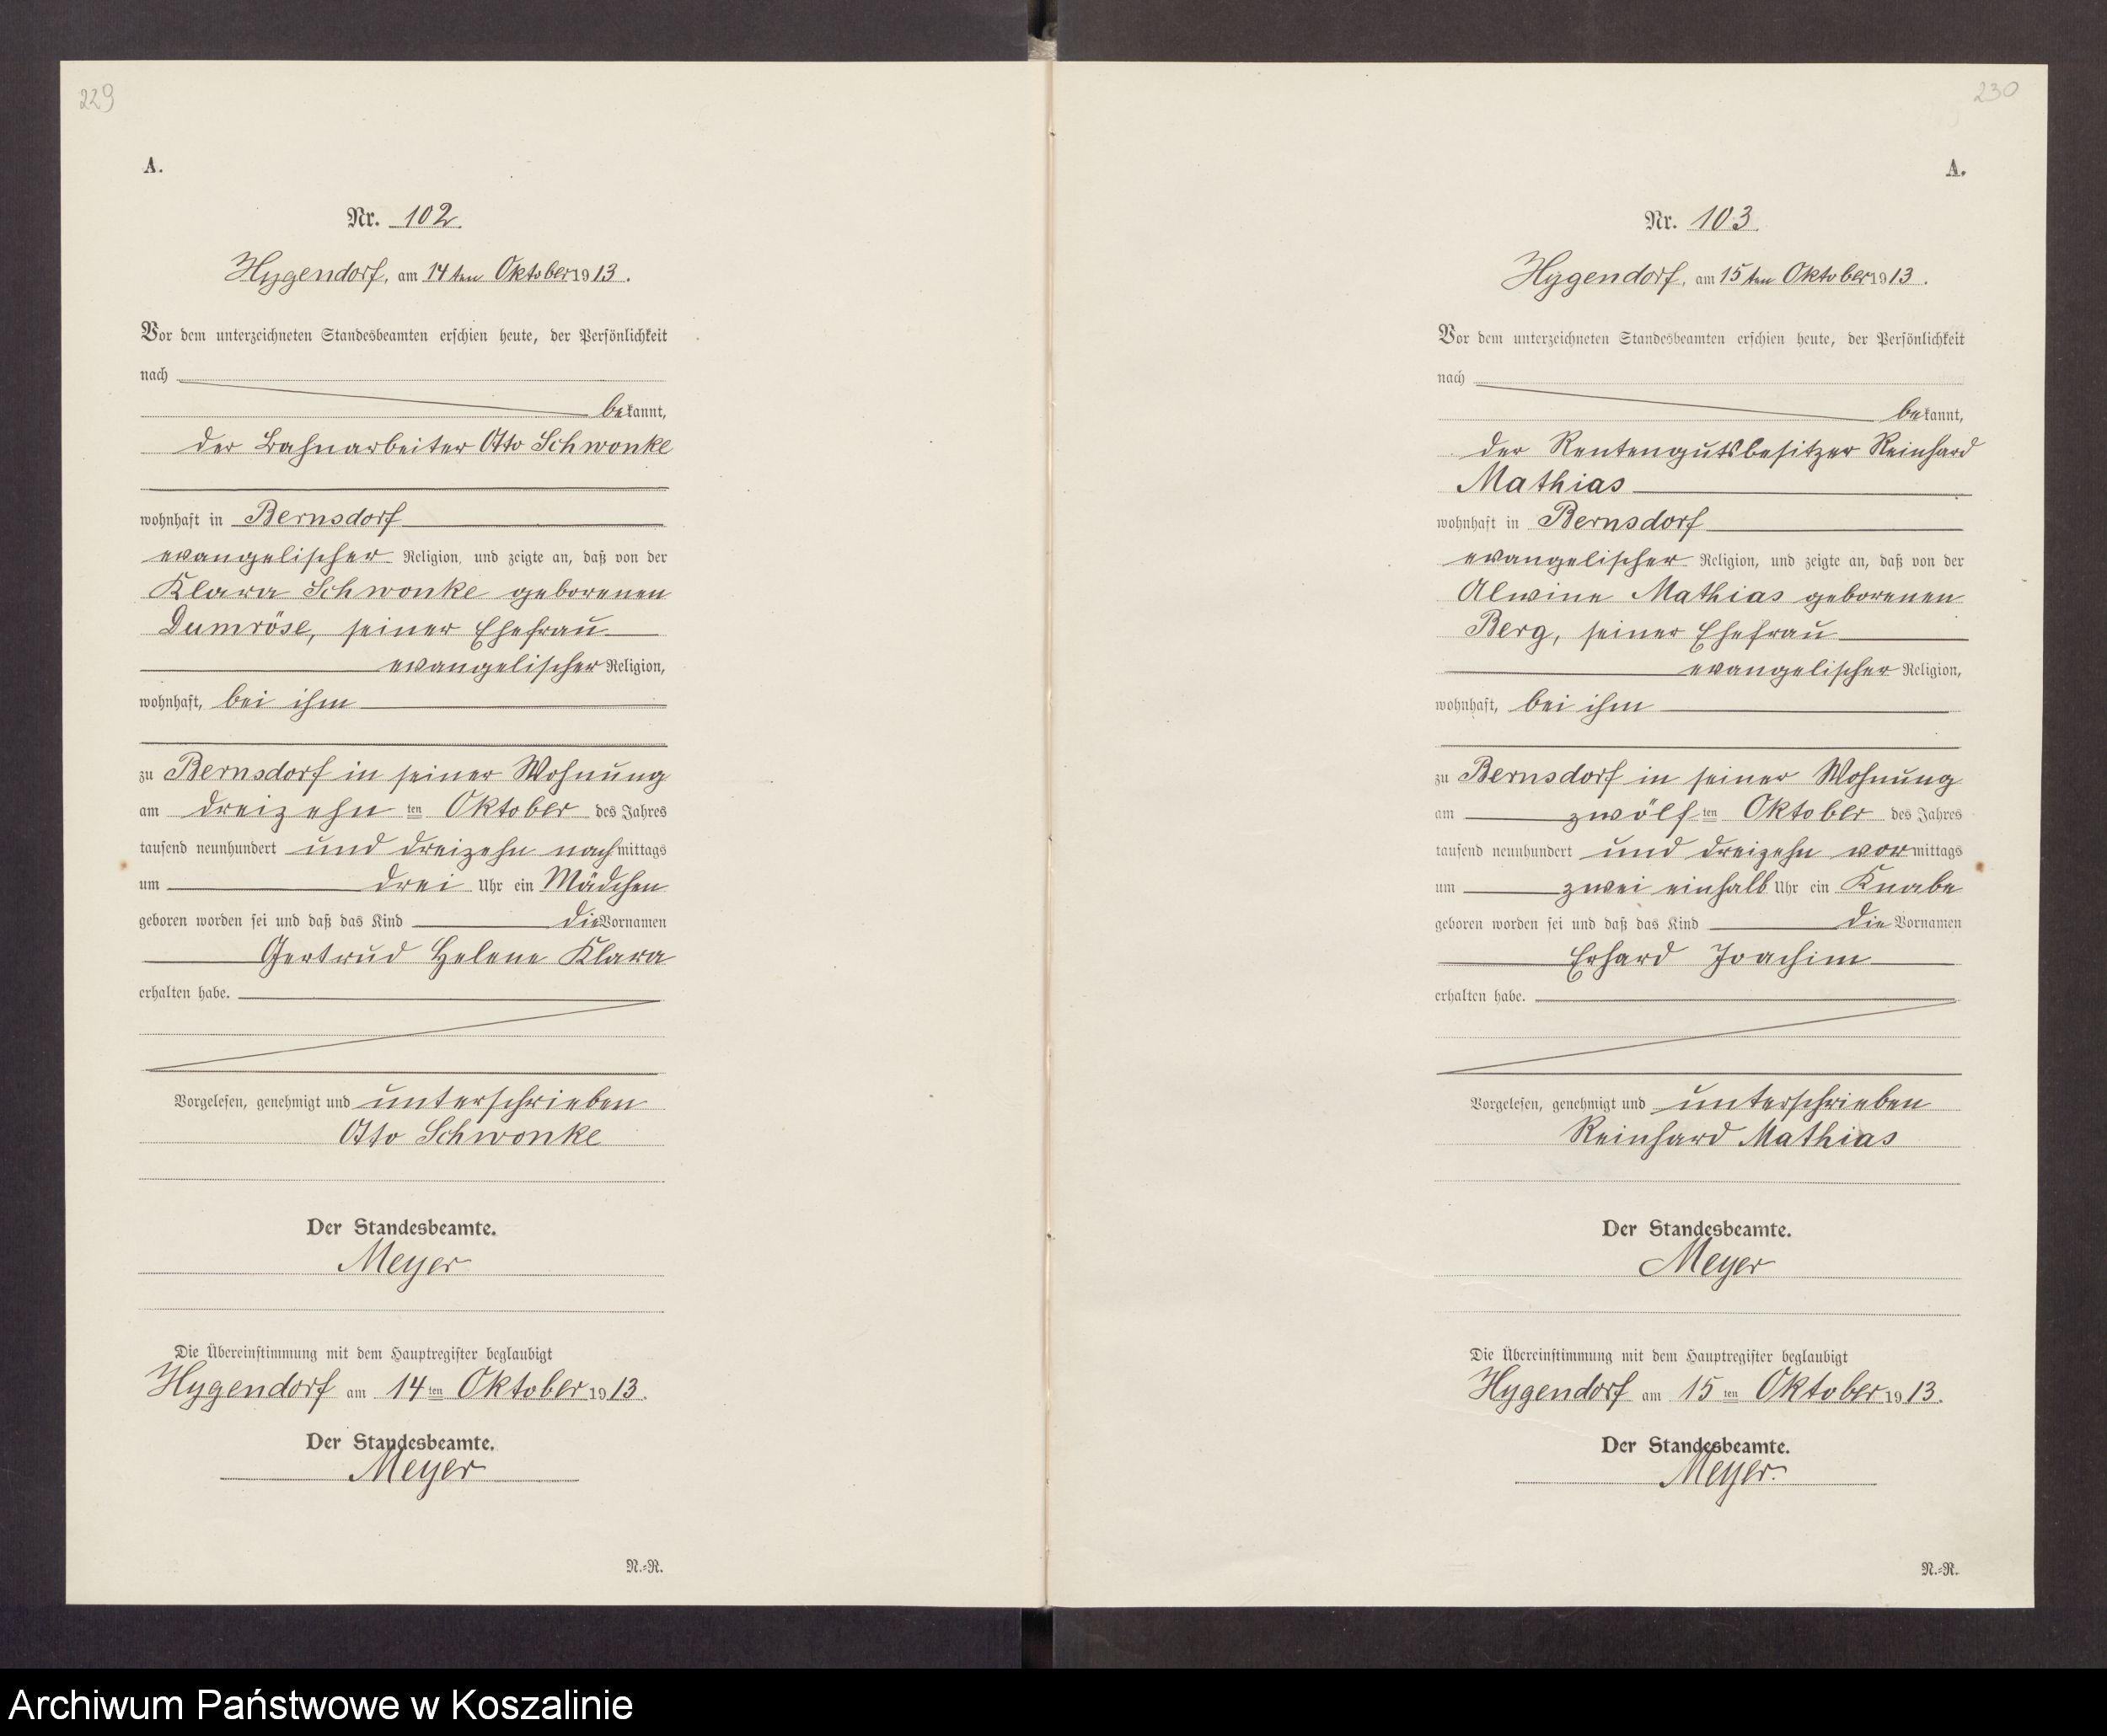 229
A.
Nr. 102
Hygendorf, am 14ten Oktober 1913.
Vor dem unterzeichneten Standesbeamten erschien heute, der Persönlichkeit
nach
bekannt,
der Bahnarbeiter Otto Schwonke
wohnhaft in Bernsdorf
evangelischer Religion, und zeigte an, daß von der
Klara Schwonke geborenen
Dumröse, seiner Ehefrau
evangelischer Religion,
wohnhaft, bei ihm
zu Bernsdorf in seiner Wohnung
am dreizehn ten Oktober des Jahres
tausend neunhundert und dreizehn nachmittags
um drei Uhr ein Mädchen
geboren worden sei und daß das Kind die Vornamen
Gertrud Helene Klara
erhalten habe.
Vorgelesen, genehmigt und unterschrieben
Otto Schwonke
Der Standesbeamte.
Meyer
Die Übereinstimmung mit dem Hauptregister beglaubigt
Hygendorf am 14 ten Oktober 1913.
Der Standesbeamte.
Meyer
N.-R.
230
A.
Nr. 103
Hygendorf, am 15ten Oktober 1913.
Vor dem unterzeichneten Standesbeamten erschien heute, der Persönlichkeit
nach
bekannt,
der Rentengutsbesitzer Reinhard
Mathias
wohnhaft in Bernsdorf
evangelischer Religion, und zeigte an, daß von der
Alwine Mathias geborenen
Berg, seiner Ehefrau
evangelischer Religion,
wohnhaft, bei ihm
zu Bernsdorf in seiner Wohnung
am zwölf ten Oktober des Jahres
tausend neunhundert und dreizehn vormittags
um zwei einhalb Uhr ein Knabe
geboren worden sei und daß das Kind die Vornamen
Erhard Joachim
erhalten habe.
Vorgelesen, genehmigt und unterschrieben
Reinhard Mathias
Der Standesbeamte.
Meyer
Die Übereinstimmung mit dem Hauptregister beglaubigt
Hygendorf am 15 ten Oktober 1913.
Der Standesbeamte.
Meyer.
N.-R.
Archiwum Państwowe w Koszalinie